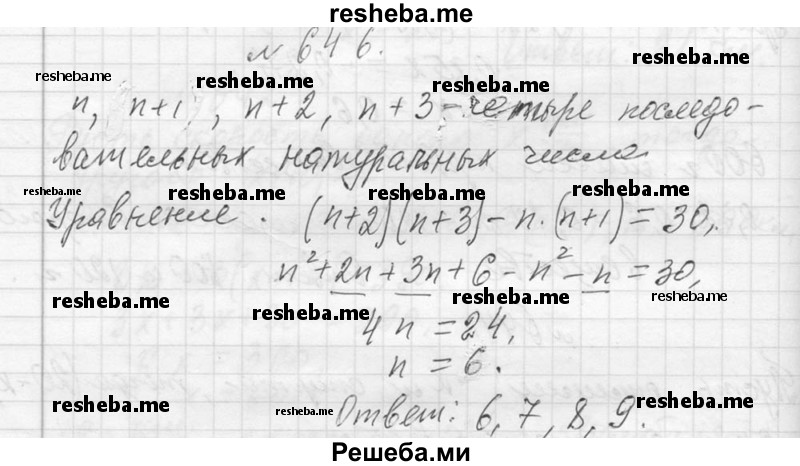 resheba.me
№ 646.
resheba.me resheba.me resheba.me resheba.me
n, n+1, n+2, n+3 - четыре последо-
вательных натуральных числа
resheba.me resheba.me resheba.me resheba.me
Уравнение. (n+2)(n+3) - n·(n+1) = 30,
n²+2n+3n+6-n²-n=30,
resheba.me resheba.me resheba.me resheba.me
4n = 24,
n = 6.
resheba.me resheba.me resheba.me resheba.me
Ответ: 6, 7, 8, 9.
Решеба.ми